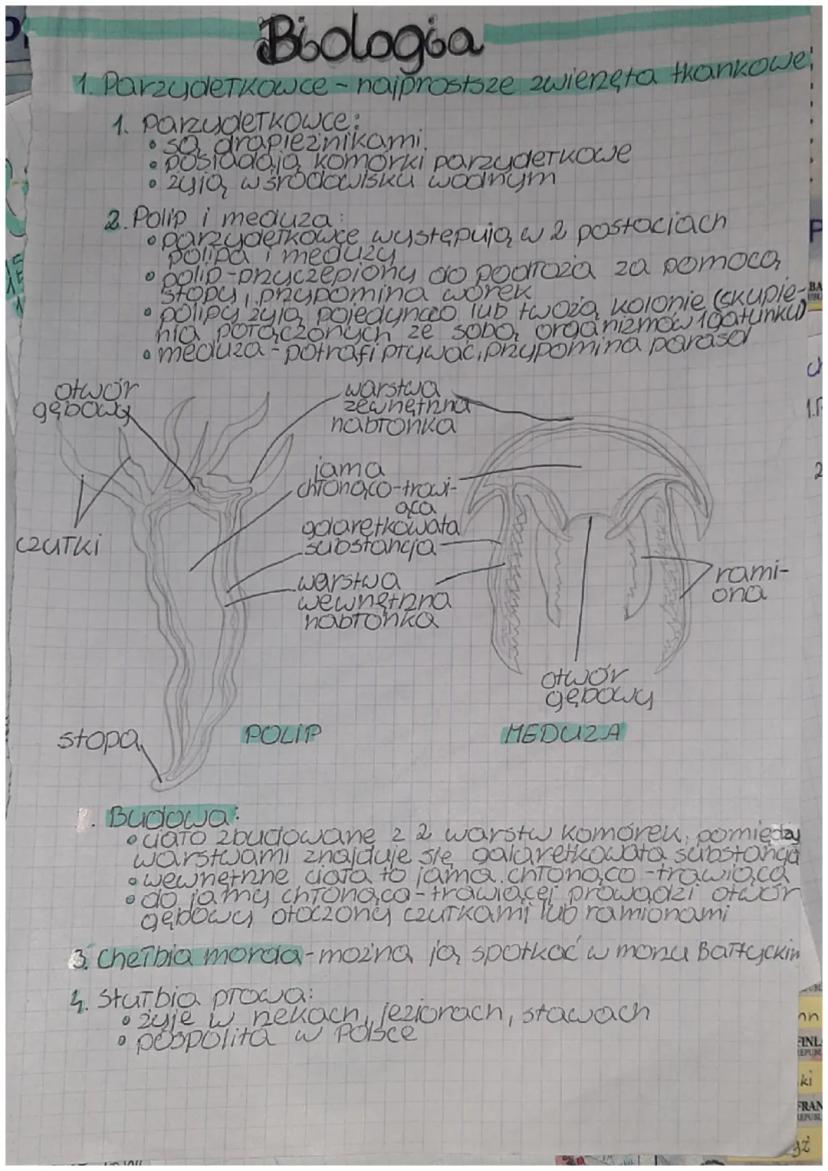 Biologia
1. Parzydełkowce - najprostsze zwierzęta tkankowe
1. Parzydełkowce:
• są drapieżnikami
• posiadają komórki parzydełkowe
• żyją w środowisku wodnym
2. Polip i meduza:
• parzydełkowce występują w 2 postaciach
polipa i meduzy
• polip - przyczepiony do podłoża za pomocą
stopy, przypomina worek
• polipy żyją pojedynczo lub tworzą kolonie (skupie-
nia połączonych ze sobą organizmów 1 gatunku)
• meduza - potrafi pływać, przypomina parasol
otwór
gębowy
warstwa
zewnętrzna
nabłonka
jama
chłonąco-trawi-
ąca
czułki
galaretkowata
substancja
warstwa
wewnętrzna
nabłonka
rami-
ona
otwór
gębowy
stopa
POLIP
MEDUZA
Budowa:
• ciało zbudowane z 2 warstw komórek, pomiędzy
warstwami znajduje się galaretkowata substancja
• wewnętrzne ciała to jama chłonąco-trawiąca
• do jamy chłonąco-trawiącej prowadzi otwór
gębowy otoczony czułkami lub ramionami
3. Chełbia morcia - można ją spotkać w morzu Bałtyckim
4. Stułbia płowa:
• żyje w rzekach, jeziorach, stawach
• pospolita w Polsce
nn
FINL
ki
FRAN